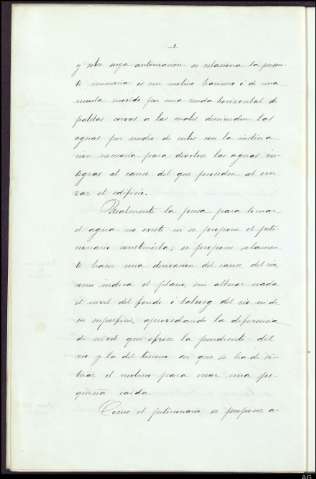 2
y sobre cuya autorización se relaciona la presen-
te memoria es un molino harinero ó de una
muela movido por una rueda horizontal de
paletas curvas a la cuales descienden las
aguas por medio de cubo con la inclina
ción necesaria para devolver las aguas in-
tegras al cauce del que proceden al cru-
zar el edificio.
Realmente la presa para tomar
el agua no existe ni se propone el peti-
cionario construirla; se propone solamen-
te hacer una derivación del cauce del río
como indica el plano, sin alterar nada
el nivel del fondo o talweg del río ni de
su superficie, aprovechando la diferencia
de nivel que ofrece la pendiente del
río y la del terreno en que se ha de si-
tuar el molino para crear una pe-
queña caida.
Como el peticionario se propone a-